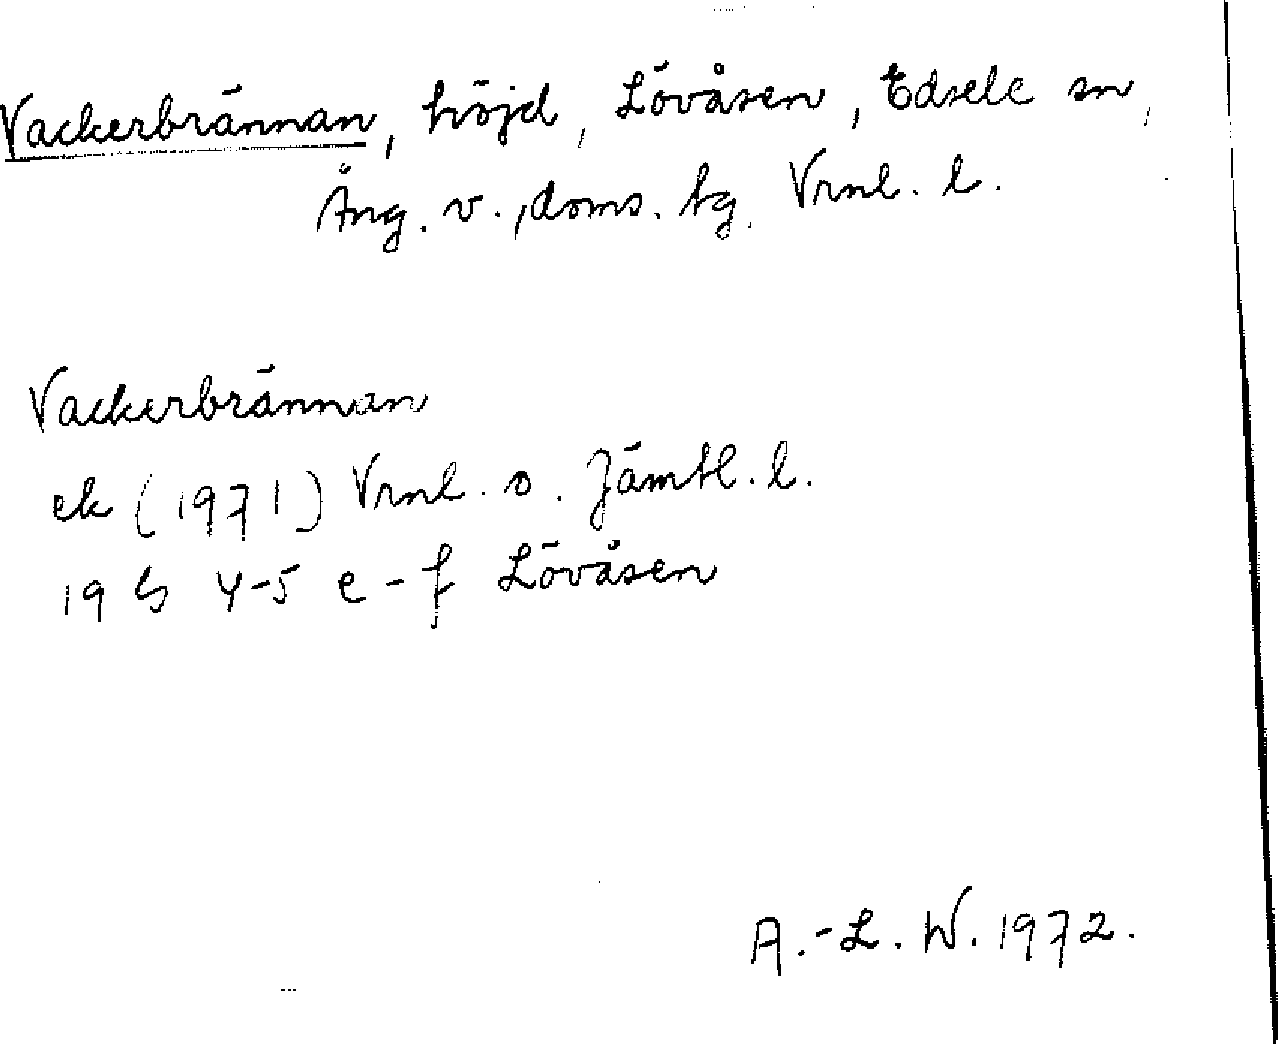 Vackerbrännan, höjd, Lövåsen, Edsele sn,
Ång. v., doms. tg. Vrnl. l.
Vackerbrännan
ek (1971) Vrnl. o. Jämtl. l.
19 G 4-5 e-f Lövåsen
A.-L. W. 1972.